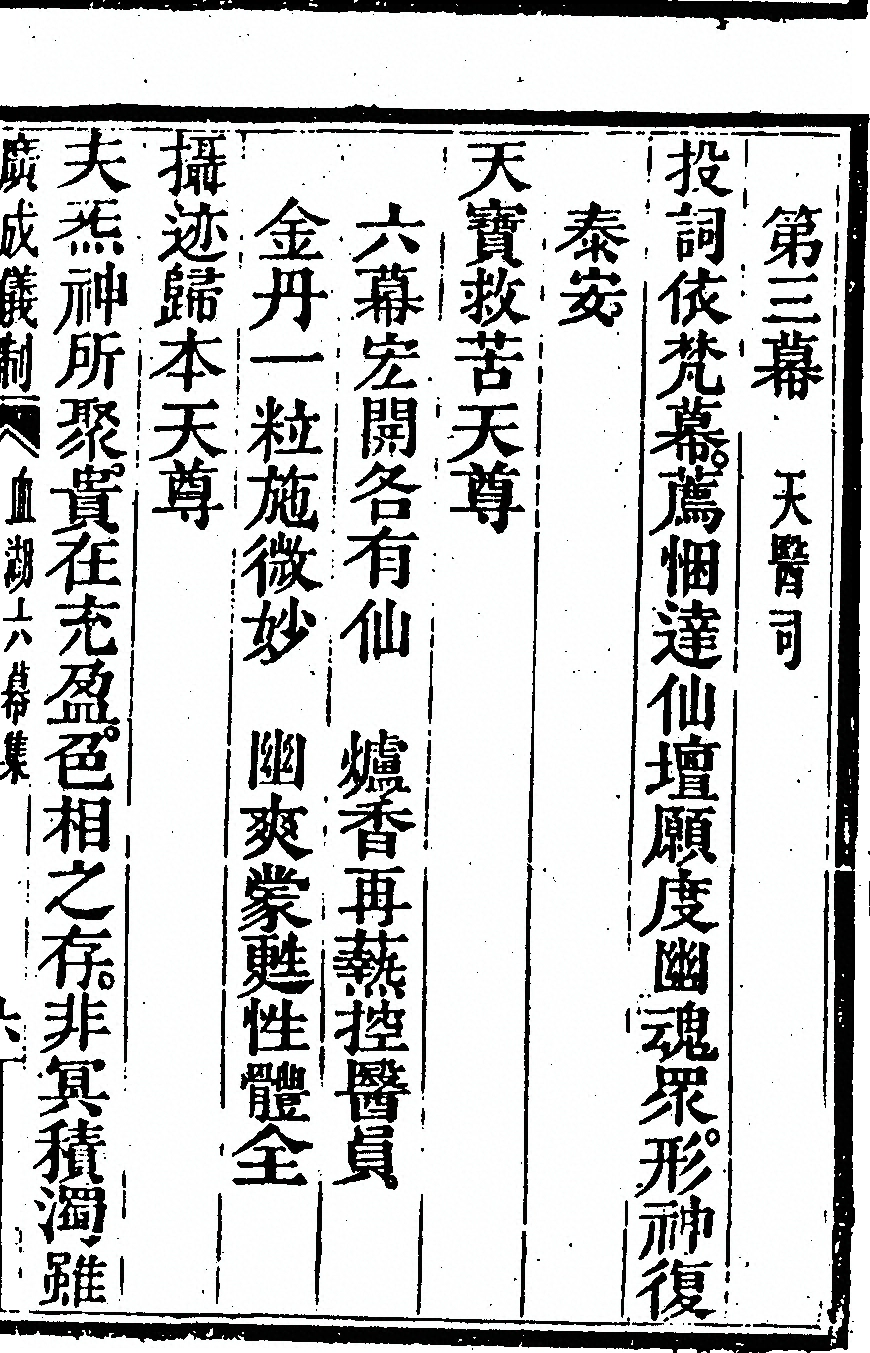 第三幕　天醫司
投詞依梵幕。薦悃達仙壇願度幽魂眾。形神復
泰安。
天寶救苦天尊
六幕宏開各有仙　爐香再爇控醫員
金丹一粒施微妙　幽爽蒙甦性體全
攝迹歸本天尊
夫炁神所聚。貴在充盈。色相之存。非冥積濁。雖
廣成儀制　血湖六幕集　六